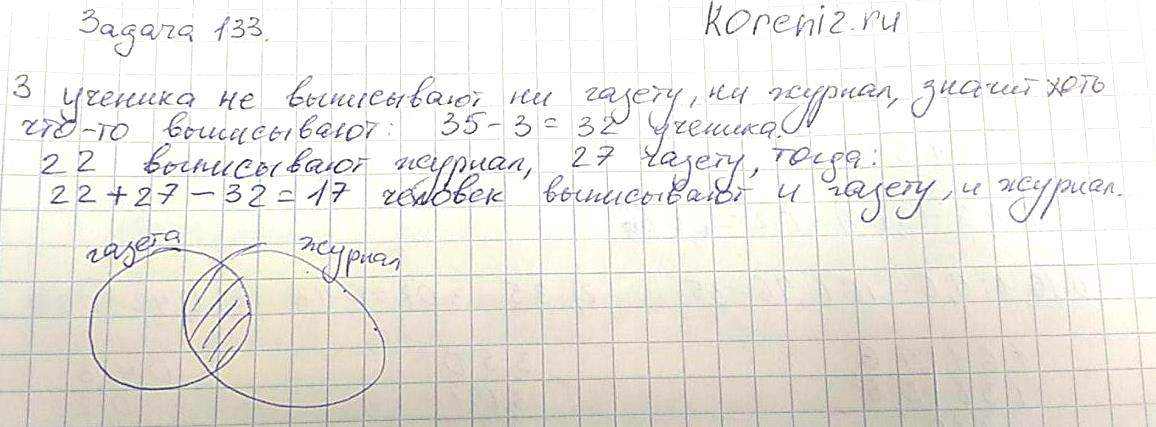 Задача 133.
Koreniz.ru
3 ученика не выписывают ни газету, ни журнал, значит хоть
что-то выписывают: 35-3=32 ученика.
22 выписывают журнал, 27 газету, тогда:
22+27-32=17 человек выписывают и газету, и журнал.
газета журнал